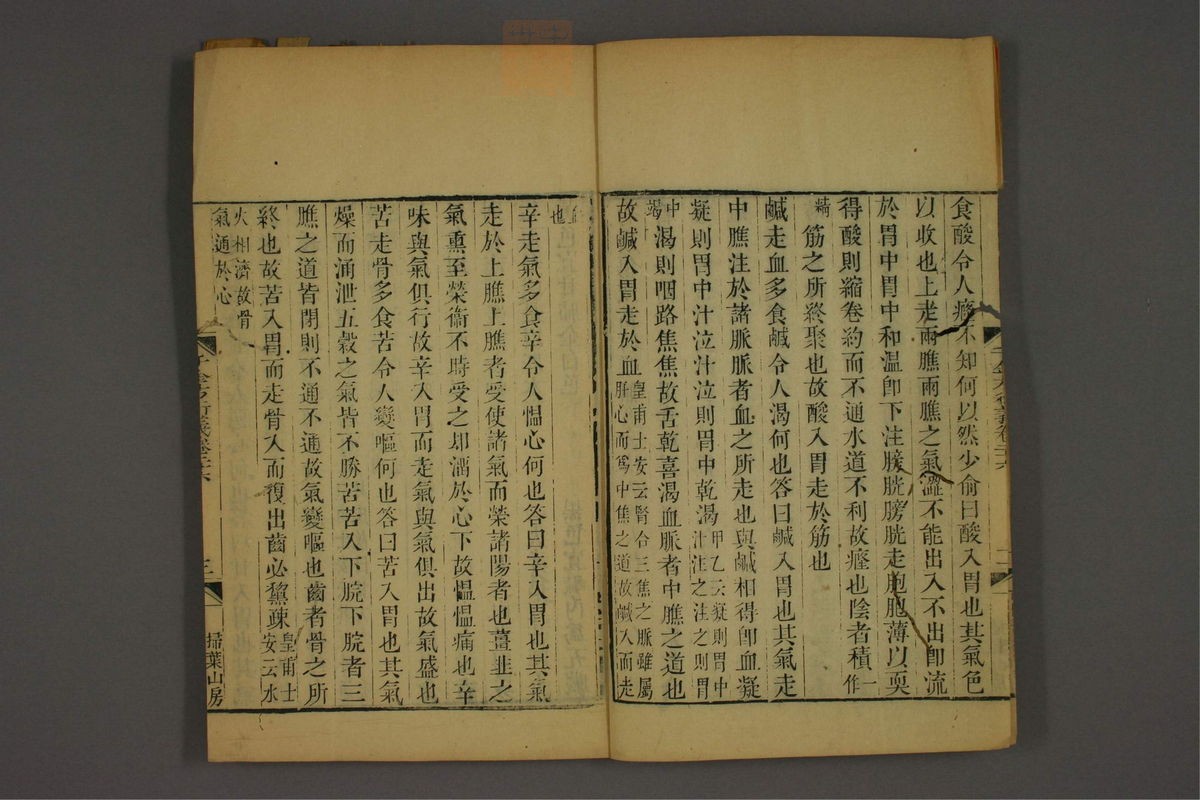 食酸令人癃不知何以然少俞曰酸入胃也其氣色
以收也上走兩膲兩膲之氣澀不能出入不出卽流
於胃中胃中和温卽下注膀胱膀胱走胞胞薄以耎
得酸則縮卷約而不通水道不利故癃也陰者積一作
精筋之所終聚也故酸入胃走於筋也
鹹走血多食鹹令人渴何也答曰鹹入胃也其氣走
中膲注於諸脈脈者血之所走也與鹹相得卽血凝
凝則胃中汁泣汁泣則胃中乾渴甲乙云凝則胃中汁注之注之則胃中
竭渴則咽路焦焦故舌乾喜渴血脈者中膲之道也
故鹹入胃走於血皇甫士安云腎合三焦之脈雖屬肝心而爲中焦之道故鹹入而走
血也
辛走氣多食辛令人愠心何也答曰辛入胃也其氣
走於上膲上膲者受使諸氣而榮諸陽者也薑韭之
氣熏至榮衞不時受之却溜於心下故愠愠痛也辛
味與氣俱行故辛入胃而走氣與氣俱出故氣盛也
苦走骨多食苦令人變嘔何也答曰苦入胃也其氣
燥而涌泄五穀之氣皆不勝苦苦入下脘下脘者三
膲之道皆閉則不通不通故氣變嘔也齒者骨之所
終也故苦入胃而走骨入而復出齒必黧疎皇甫士安云水
火相濟故骨氣通於心
千金方衍義卷二十六
三
掃葉山房